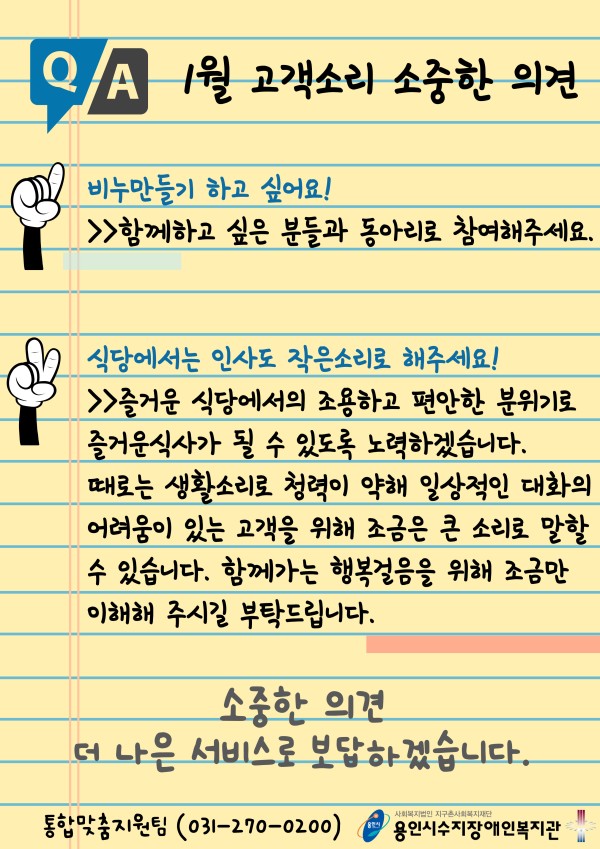 Q A
1월 고객소리 소중한 의견
비누만들기 하고 싶어요!
>>함께하고 싶은 분들과 동아리로 참여해주세요.
식당에서는 인사도 작은소리로 해주세요!
>>즐거운 식당에서의 조용하고 편안한 분위기로
즐거운식사가 될 수 있도록 노력하겠습니다.
때로는 생활소리로 청력이 약해 일상적인 대화의
어려움이 있는 고객을 위해 조금은 큰 소리로 말할
수 있습니다. 함께가는 행복걸음을 위해 조금만
이해해 주시길 부탁드립니다.
소중한 의견
더 나은 서비스로 보답하겠습니다.
통합맞춤지원팀 (031-270-0200)
용인시
사회복지법인 지구촌사회복지재단
용인시수지장애인복지관